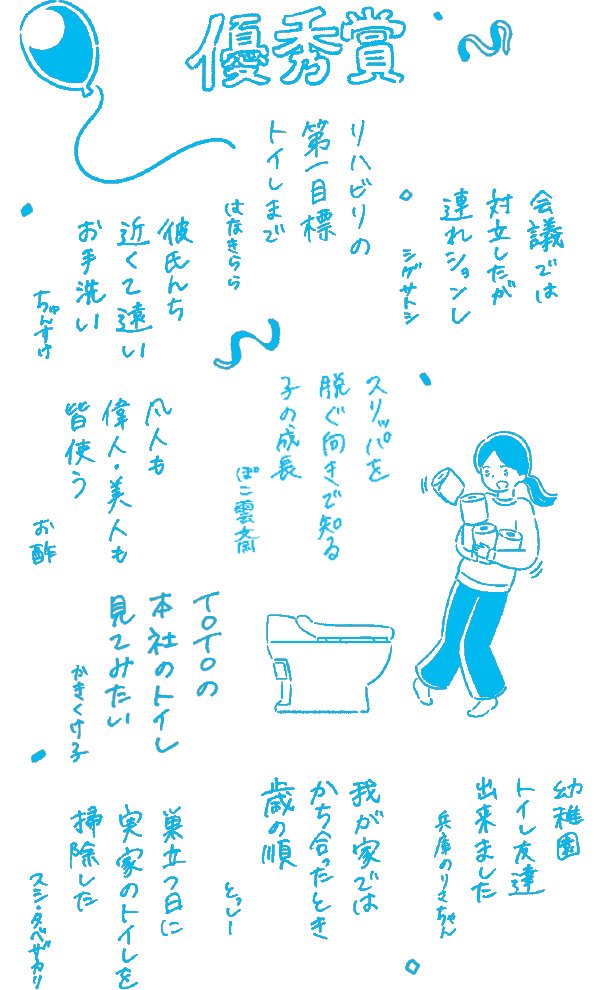 優秀賞
会議では
対立したが
連れションし
シゲサトシ
リハビリの
第一目標
トイレまで
はなきらら
彼氏んち
近くて遠い
お手洗い
ちゅんすけ
スリッパを
脱ぐ向きで知る
子の成長
ぽこ雲文斎
凡人も
偉人・美人も
皆使う
お酢
TOTOの
本社のトイレ
見てみたい
かきくけ子
幼稚園
トイレ友達
出来ました
兵庫のりさちゃん
我が家では
かち合ったとき
歳の順
とっしー
巣立つ日に
実家のトイレを
掃除した
スシ・タベザカリ